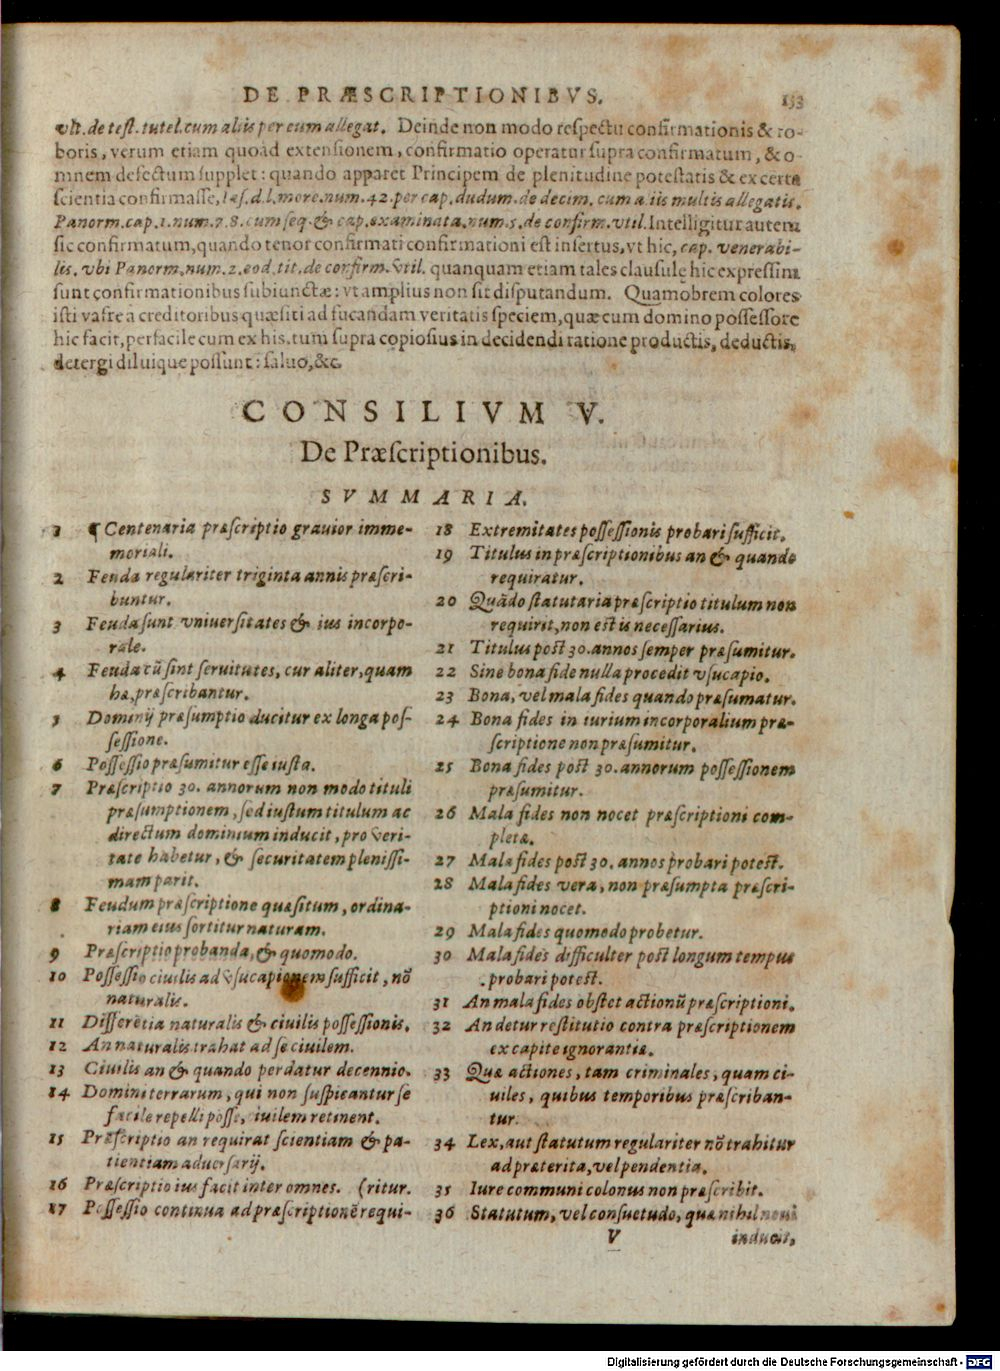 DE PRÆSCRIPTIONIBVS. 153
vlt. de test. tutel. cum aliis per eum allegat. Deinde non modo respectu confirmationis & ro-
boris, verum etiam quoad extensionem, confirmatio operatur supra confirmatum, & o-
mnem defectum supplet: quando apparet Principem de plenitudine potestatis & ex certa
scientia confirmasse, Ias. d. l. more. num. 42. per cap. dudum. de decim. cum aliis multis allegatis.
Panorm. cap. 1. num. 7. 8. cum seq. & cap. examinata. num. 5. de confirm. vtil. Intelligitur autem
sic confirmatum, quando tenor confirmati confirmationi est insertus, vt hic, cap. venerabi-
lis. vbi Panorm. num. 2. eod. tit. de confirm. vtil. quanquam etiam tales clausulę hic expressim
sunt confirmationibus subiunctæ: vt amplius non sit disputandum. Quamobrem colores
isti vafre a creditoribus quæsiti ad fucandam veritatis speciem, quæ cum domino possessore
hic facit, perfacile cum ex his, tum supra copiosius in decidendi ratione productis, deductis,
detergi diluique possunt: saluo, &c.
CONSILIVM V.
De Præscriptionibus.
SVMMARIA.
1 ¶ Centenaria præscriptio grauior imme-
moriali.
2 Feuda regulariter triginta annis præscri-
buntur.
3 Feuda sunt vniuersitates & ius incorpo-
rale.
4 Feuda cũ sint seruitutes, cur aliter, quam
hæ, præscribantur.
5 Dominij præsumptio ducitur ex longa pos-
sessione.
6 Possessio præsumitur esse iusta.
7 Præscriptio 30. annorum non modo tituli
præsumptionem, sed iustum titulum ac
directum dominium inducit, pro veri-
tate habetur, & securitatem plenissi-
mam parit.
8 Feudum præscriptione quæsitum, ordina-
riam eius sortitur naturam.
9 Præscriptio probanda, & quomodo.
10 Possessio ciuilis ad vsucapionem sufficit, nõ
naturalis.
11 Differẽtia naturalis & ciuilis possessionis.
12 An naturalis trahat ad se ciuilem.
13 Ciuilis an & quando perdatur decennio.
14 Domini terrarum, qui non suspicantur se
facile repelli posse, iuilem retinent.
15 Præscriptio an requirat scientiam & pa-
tientiam aduersarij.
16 Præscriptio ius facit inter omnes. (ritur.
17 Possessio continua ad præscriptionẽ requi-
18 Extremitates possessionis probari sufficit.
19 Titulus in præscriptionibus an & quando
requiratur.
20 Quãdo statutaria præscriptio titulum non
requirit, non est is necessarius.
21 Titulus post 30. annos semper præsumitur.
22 Sine bona fide nulla procedit vsucapio.
23 Bona, vel mala fides quando præsumatur.
24 Bona fides in iurium incorporalium præ-
scriptione non præsumitur.
25 Bona fides post 30. annorum possessionem
præsumitur.
26 Mala fides non nocet præscriptioni com-
pletæ.
27 Mala fides post 30. annos probari potest.
28 Mala fides vera, non præsumpta præscri-
ptioni nocet.
29 Mala fides quomodo probetur.
30 Mala fides difficulter post longum tempus
probari potest.
31 An mala fides obstet actionũ præscriptioni.
32 An detur restitutio contra præscriptionem
ex capite ignorantiæ.
33 Quæ actiones, tam criminales, quam ci-
uiles, quibus temporibus præscriban-
tur.
34 Lex, aut statutum regulariter nõ trahitur
ad præterita, vel pendentia.
35 Iure communi colonus non præscribit.
36 Statutum, vel consuetudo, quæ nihil noui
V inducit,
Digitalisierung gefördert durch die Deutsche Forschungsgemeinschaft - DFG